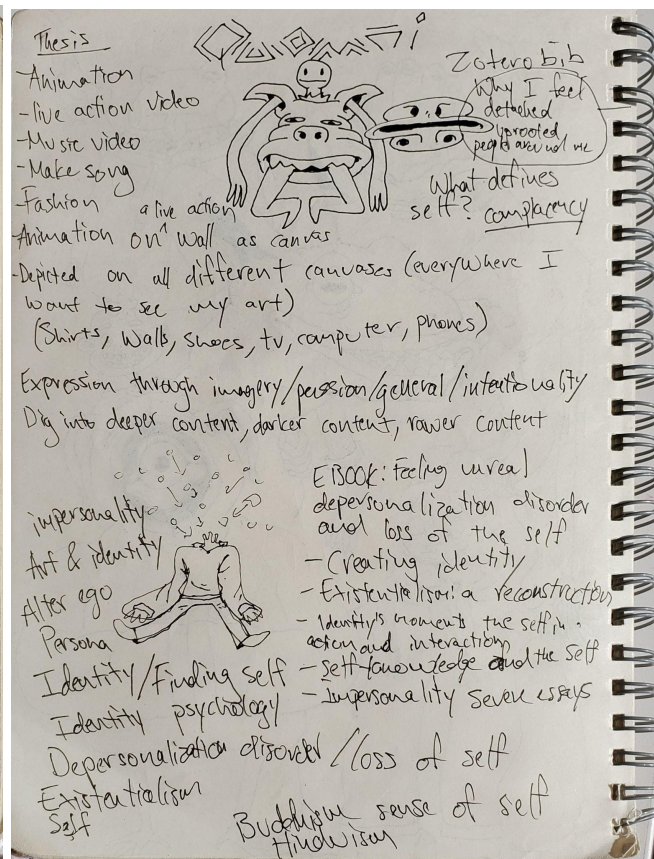 Thesis
-Animation
-live action video
-Music video
-Make song
-Fashion
a live action
-Animation on ^ wall as canvas
-Depicted on all different canvases (everywhere I
want to see my art)
(Shirts, Walls, Shoes, tv, computer, phones)
Zotero bib
Why I feel
detached
uprooted
people around me
What defines
self? complacency
Expression through imagery/passion/general/intentionality
Dig into deeper content, darker content, rawer content
impersonality
Art & identity
Alter ego
Persona
Identity/Finding self
Identity psychology
Depersonalization disorder/loss of self
Existentialism
Self
EBOOK: Feeling unreal
depersonalization disorder
and loss of the self
-Creating identity
-Existentialism: a reconstruction
-Identity's moments the self in
action and interaction
-Self-knowledge and the Self
-Impersonality seven essays
Buddhism sense of self
Hinduism